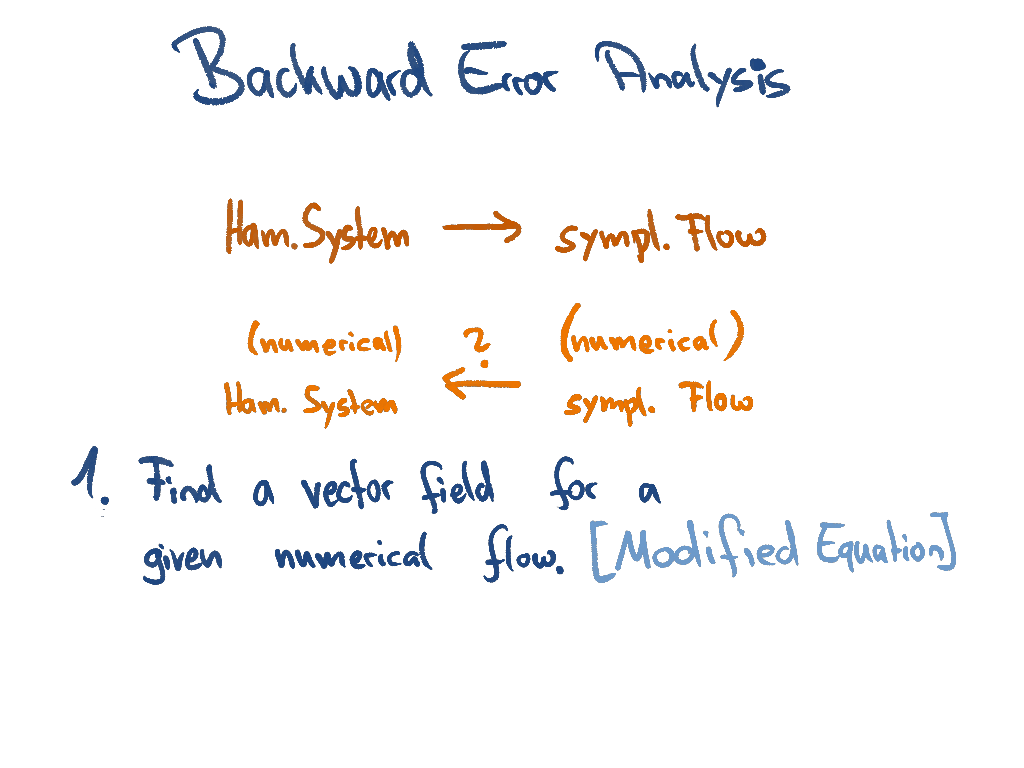 Backward Error Analysis
Ham. System → sympl. Flow
(numerical) ? (numerical)
Ham. System ← sympl. Flow
1. Find a vector field for a
given numerical flow. [Modified Equation]